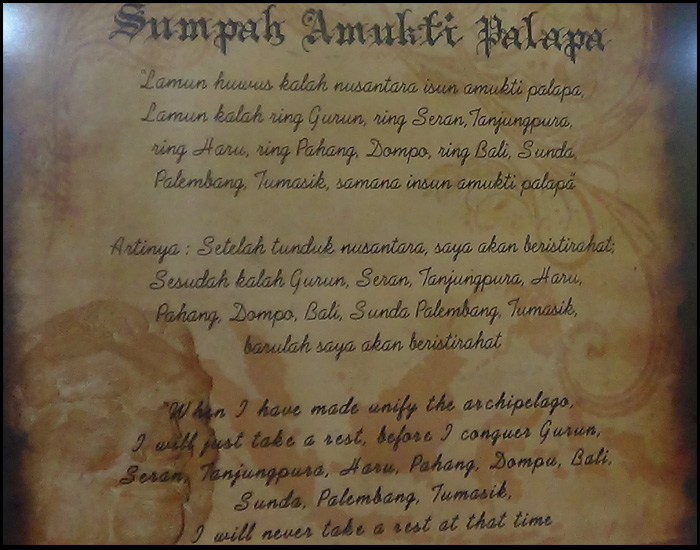 Sumpah Amukti Palapa
"Lamun huwus kalah nusantara isun amukti palapa,
Lamun kalah ring Gurun, ring Seran, Tanjungpura,
ring Haru, ring Pahang, Dompo, ring Bali, Sunda,
Palembang, Tumasik, samana insun amukti palapa"
Artinya : Setelah tunduk nusantara, saya akan beristirahat;
Sesudah kalah Gurun, Seran, Tanjungpura, Haru,
Pahang, Dompo, Bali, Sunda Palembang, Tumasik,
barulah saya akan beristirahat
"When I have made unify the archipelago,
I will just take a rest, before I conquer Gurun,
Seran, Tanjungpura, Haru, Pahang, Dompu, Bali,
Sunda, Palembang, Tumasik,
I will never take a rest at that time